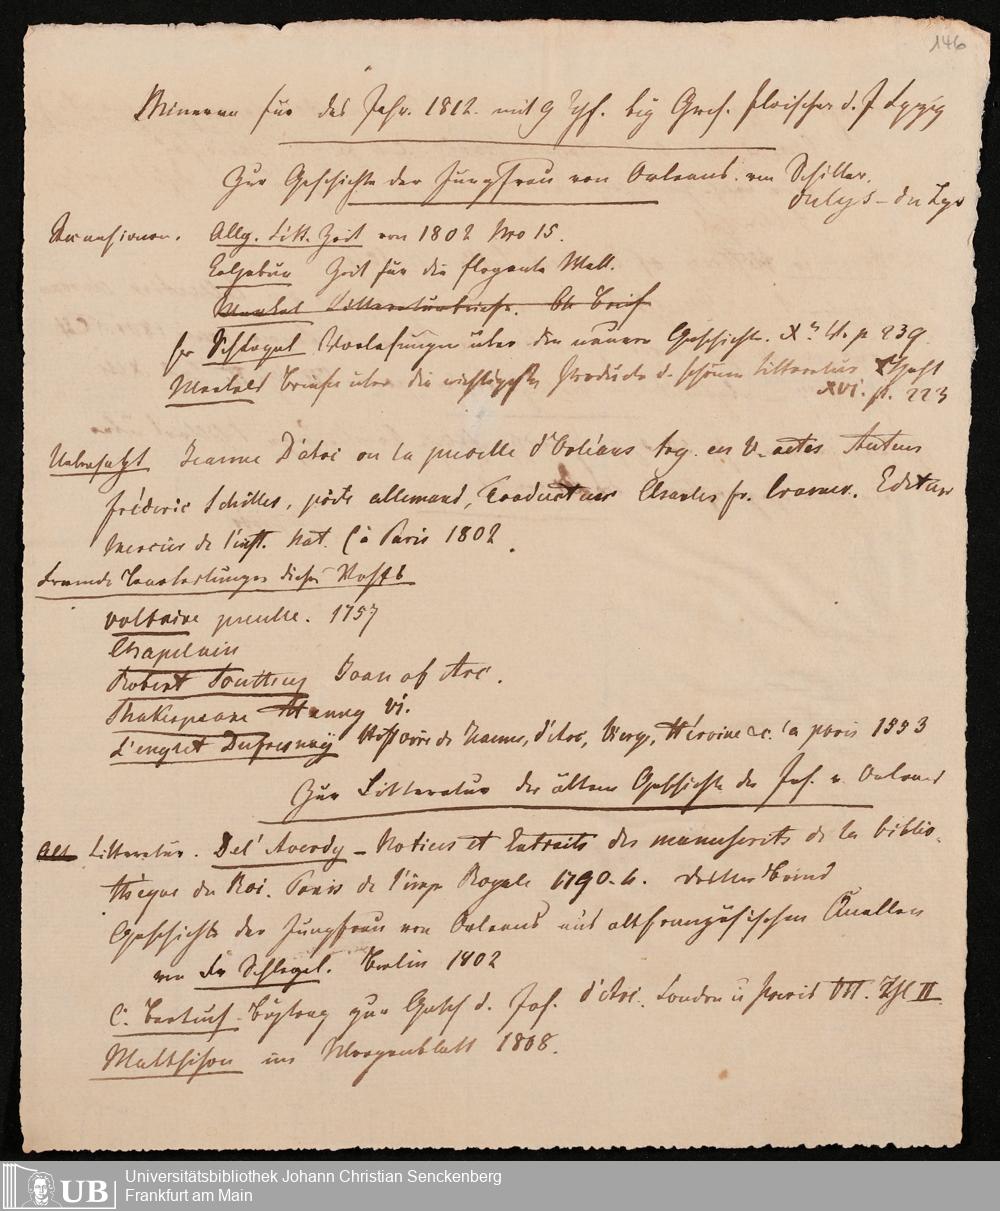 146
Minerva für das Jahr. 1812. mit 9 Kpf. bey Gerh. Fleischer d. J Leipzig
Zur Geschichte der Jungfrau von Orleans. von Schiller.
Dulys - du Lys
Recensionen. Allg. Litt. Zeit von 1802 Nro 15.
Zeit für die elegante Welt.
Merkel Litteraturbriefe. Brief
Fr Schlegel Vorlesungen über die neuere Geschichte. p 239
Merkels Briefe über die wichtigsten Produkte d. schönen Litteratur Heft
XVI. p. 223
Uebersetzt Jeanne D'Arc ou la pucelle d'Orléans trag. en V. actes Auteur
fréderic Schiller, poète allemand, Traducteur Charles fr. Cramer. Editeur
Mercier de l'inst. Nat. à Paris 1802.
Fremde Bearbeitungen dieses Stoffs
Voltaire pucelle. 1757
Chapelain
Robert Southey Joan of Arc.
Shakespeare Henry VI.
L'englet Dufresnoy Histoire de Jeanne, d'Arc, Vierge, Héroine &c. à paris 1553
Zur Litteratur der ältern Geschichte der Jgf. v. Orleans
Alt Litteratur. Del' Averdy - Notices et Extraits des manuscrits de la biblio-
thèque du Roi. Paris de l'imp Royale 1790. 4. dritter Band
Geschichte der Jungfrau von Orleans aus altfranzösischen Quellen
von Fr Schlegel. Berlin 1802
C. Bertuch Beytrag zur Gesch d. Joh. d'Arc. London u Paris III
Matthison im Morgenblatt 1808.
Universitätsbibliothek Johann Christian Senckenberg
Frankfurt am Main
UB